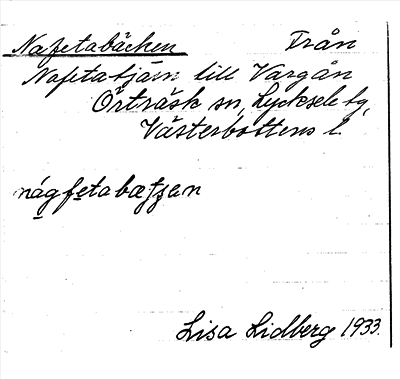 Nafetabäcken Från
Nafetatjärn till Vargån
Örträsk sn, Lycksele tg,
Västerbottens l.
nágfetabæƫʂan
Lisa Lidberg 1933.